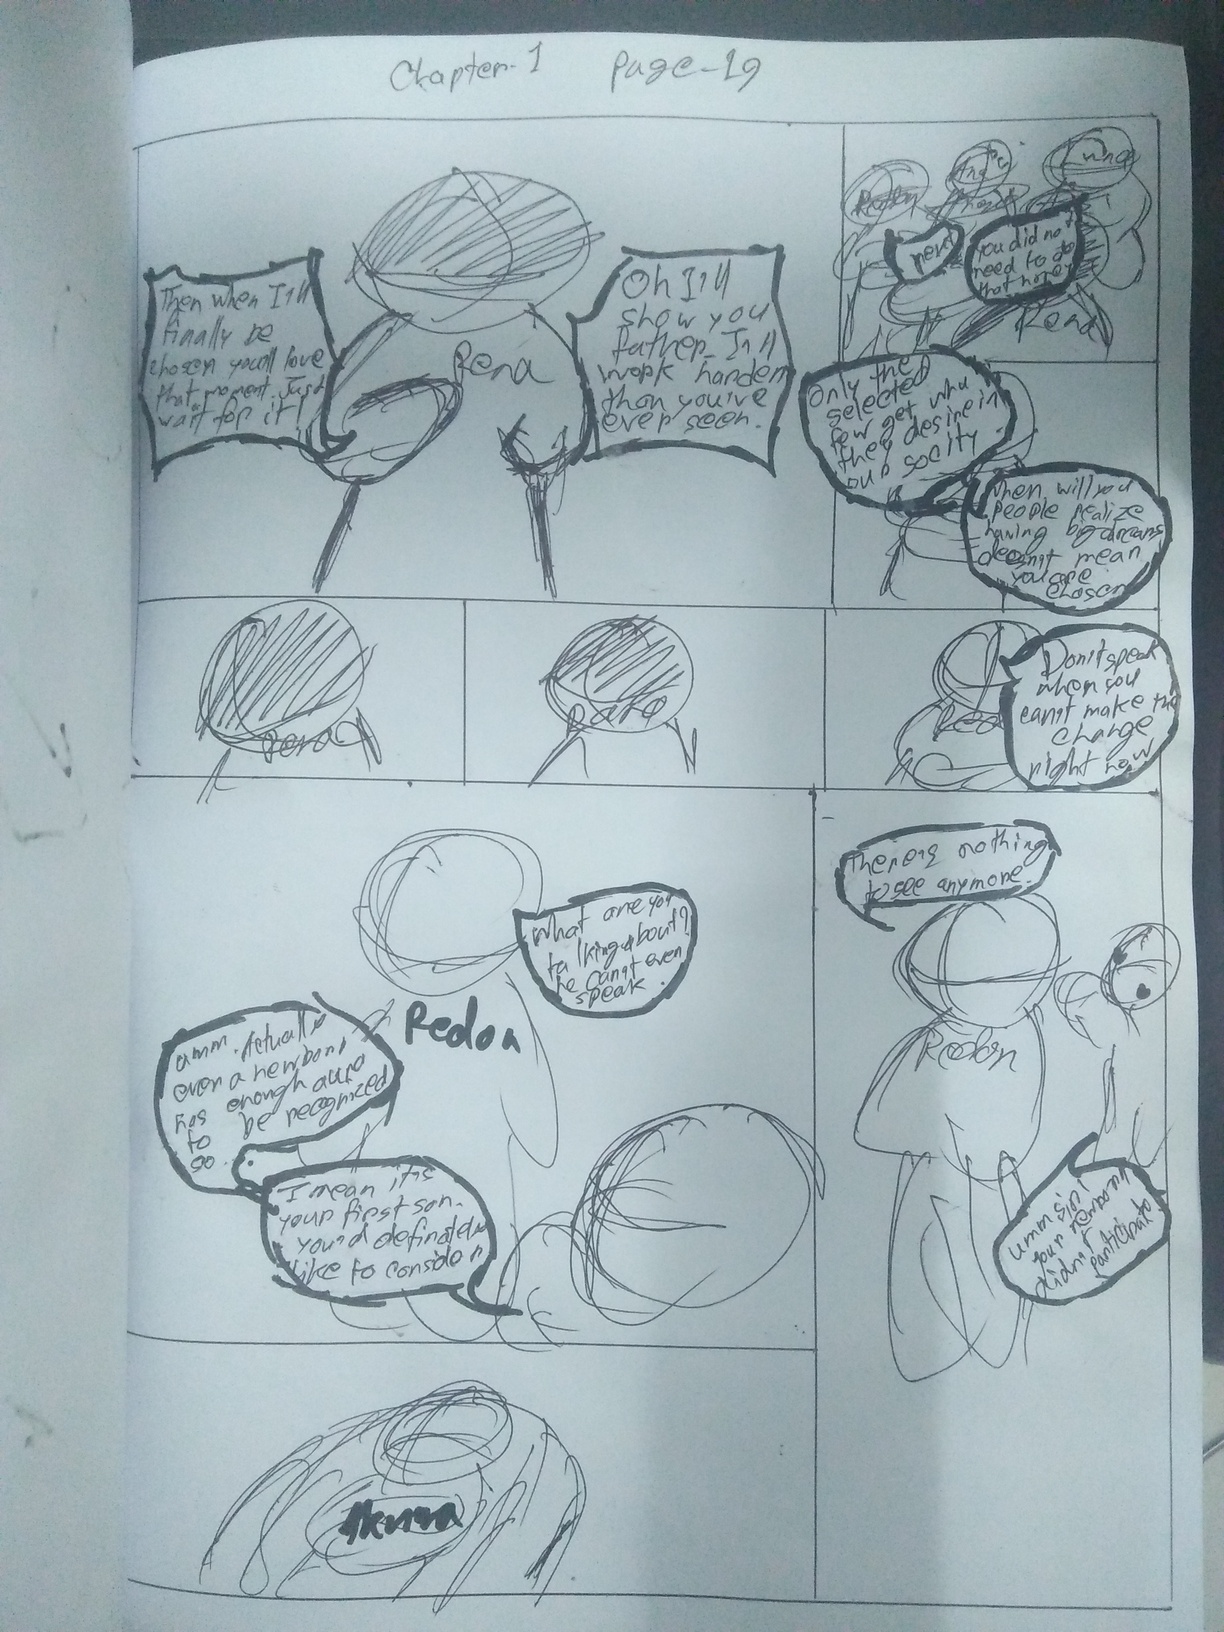 Chapter-1 Page-19
Then when I'll
finally be
chosen you'll love
that moment. Just
wait for it!
Rena
Oh I'll
show you
father. I'll
work harder
than you've
ever seen.
Redon
Luna
you did not
need to do
that honey
Rena
Only the
selected
few get who
they desire in
our socity
when will you
people realize
having big dreams
doesn't mean
you are
chosen
Rena
Don't speak
when you
can't make the
change
right now
What are you
talking about?
he can't even
speak.
Redon
umm. Actually
even a newborn
has enough aura
to be recognized
so.
I mean it's
your first son.
you'd definately
like to consider
There's nothing
to see anymore.
Redon
umm sir!
your newborn
didn't
participate